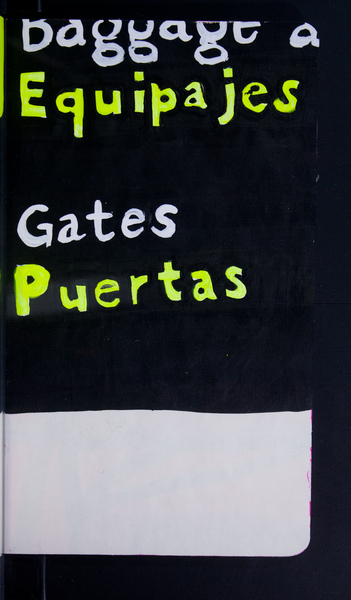 Baggage a
Equipajes
Gates
Puertas